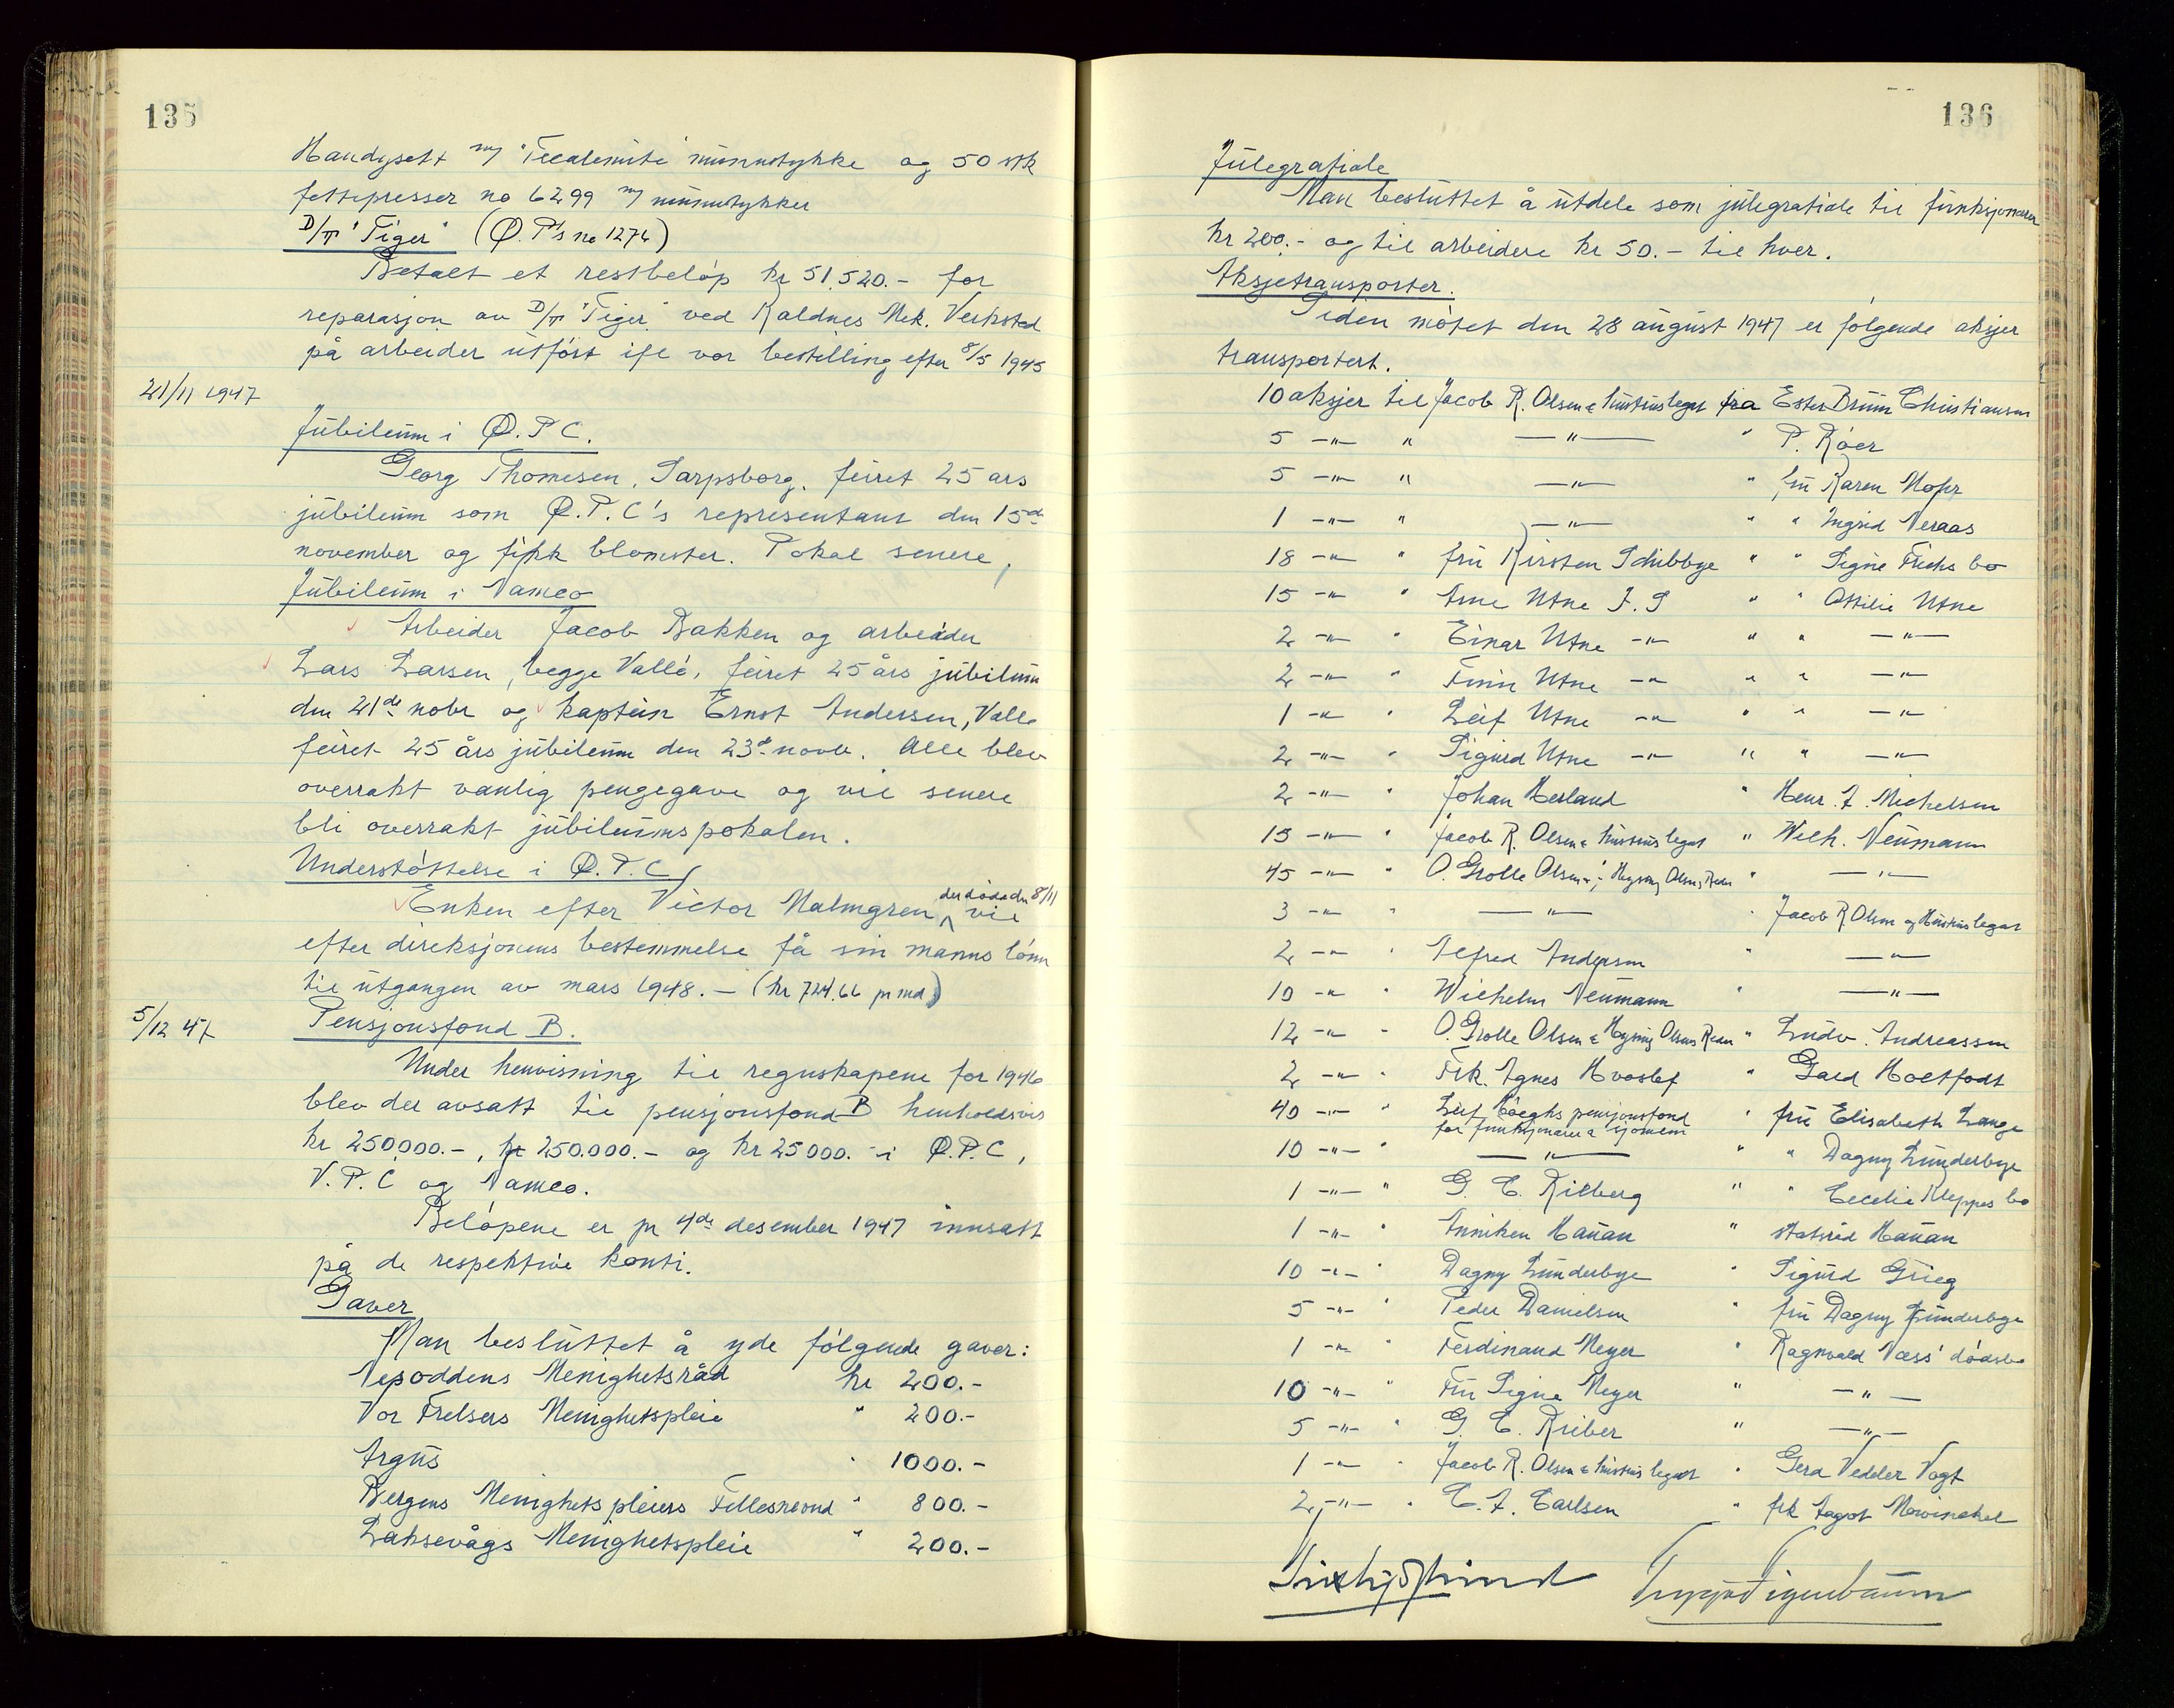 135
Handysett m/ "Tecalemite" munnstykke og 50 stk
fettepresser no 6299 m/ munnstykker
D/T "Tiger" (Ø.P's no 1276)
Betalt et restbeløp kr 51.520.- for
reparasjon av D/T "Tiger" ved Kaldnes Mek. Verksted
på arbeider utført ifl vor bestilling efter 8/5 1945
21/11 1947
Jubileum i Ø.P.C.
Georg Thomesen, Sarpsborg, feiret 25 års
jubileum som Ø.P.C's representant den 15de
november og fikk blomster. Pokal senere,
Jubileum i Vameo
Arbeider Jacob Bakken og arbeider
Lars Larsen, begge Vallø, feiret 25 års jubileum
den 21de nobr og kaptein Ernst Andersen, Vallø
feiret 25 års jubileum den 23d novb. Alle blev
overrakt vanlig pengegave og vil senere
bli overrakt jubileumspokalen.
Understøttelse i Ø.P.C
Enken efter Victor Malmgren, der døde den 8/11 vil
efter direksjonens bestemmelse få sin manns lønn
til utgangen av mars 1948. - (kr 724.66 pr md)
5/12 47
Pensjonsfond B.
Under henvisning til regnskapene for 1946
blev der avsatt til pensjonsfond B henholdsvis
kr 250.000.-, kr 250.000.- og kr 25000.- i Ø.P.C,
V.P.C og Vameo.
Beløpene er pr 4de desember 1947 innsatt
på de respektive konti.
Gaver
Man besluttet å yde følgende gaver:
Nesoddens Menighetsråd kr 200.-
Vor Frelsers Menighetspleie " 200.-
Argus " 1000.-
Bergens Menighetspleiers Fellesraad " 800.-
Laksevågs Menighetspleie " 200.-
136
Julegratiale
Man besluttet å utdele som julegratiale til funksjonærer
kr 200.- og til arbeidere kr 50.- til hver.
Aksjetransporter.
Siden møtet den 28 august 1947 er følgende aksjer
transportert.
10 aksjer til Jacob R. Olsen & hustrus legat fra Ester Bruun Christiansen
5 -"- " -"- " P. Røer
5 -"- " -"- " fru Karen Mohr
1 -"- " -"- " " Ingrid Neraas
18 -"- " fru Kirsten Schibbye " " Signe Friehs bo
15 -"- " Arne Utne J.S " " Ottilie Utne
2 -"- " Einar Utne -"- " " -"-
2 -"- " Finn Utne -"- " " -"-
1 -"- " Leif Utne -"- " " -"-
2 -"- " Sigurd Utne -"- " " -"-
2 -"- " Johan Herland " Henr. J. Michelsen
15 -"- " Jacob R. Olsen & hustrus legat " Wilh. Neumann
45 -"- " O. Grolle Olsen & Hysing Olsens Rederi " -"-
3 -"- " -"- " Jacob R Olsen og Hustrus legat
2 -"- " Alfred Andersen " -"-
10 -"- " Wilhelm Neumann " -"-
12 -"- " O. Grolle Olsen & Hysing Olsens Rederi " Ludv. Andreassen
2 -"- " Frk. Agnes Hvoslef " Gard Holtfodt
40 -"- " Leif Höeghs pensjonsfond for funksjonærer & sjømenn " fru Elisabeth Lange
10 -"- " -"- " " Dagny Lunderbye
1 -"- " G. C. Rieberg " " Cecelie Kleppes bo
1 -"- " Anniken Hauan " statsråd Hauan
10 -"- " Dagny Lunderbye " Sigurd Grieg
5 -"- " Peder Danielsen " fru Dagny Lunderbye
1 -"- " Ferdinand Meyer " Ragnvald Næss' dødsbo
10 -"- " Fru Signe Meyer " -"-
5 -"- " G. C. Rieber " -"-
1 -"- " Jacob R. Olsen & hustrus legat " Gerd Vedeler Vogt
2 -"- " C. J. Carlsen " frk Aagot Mowinckel